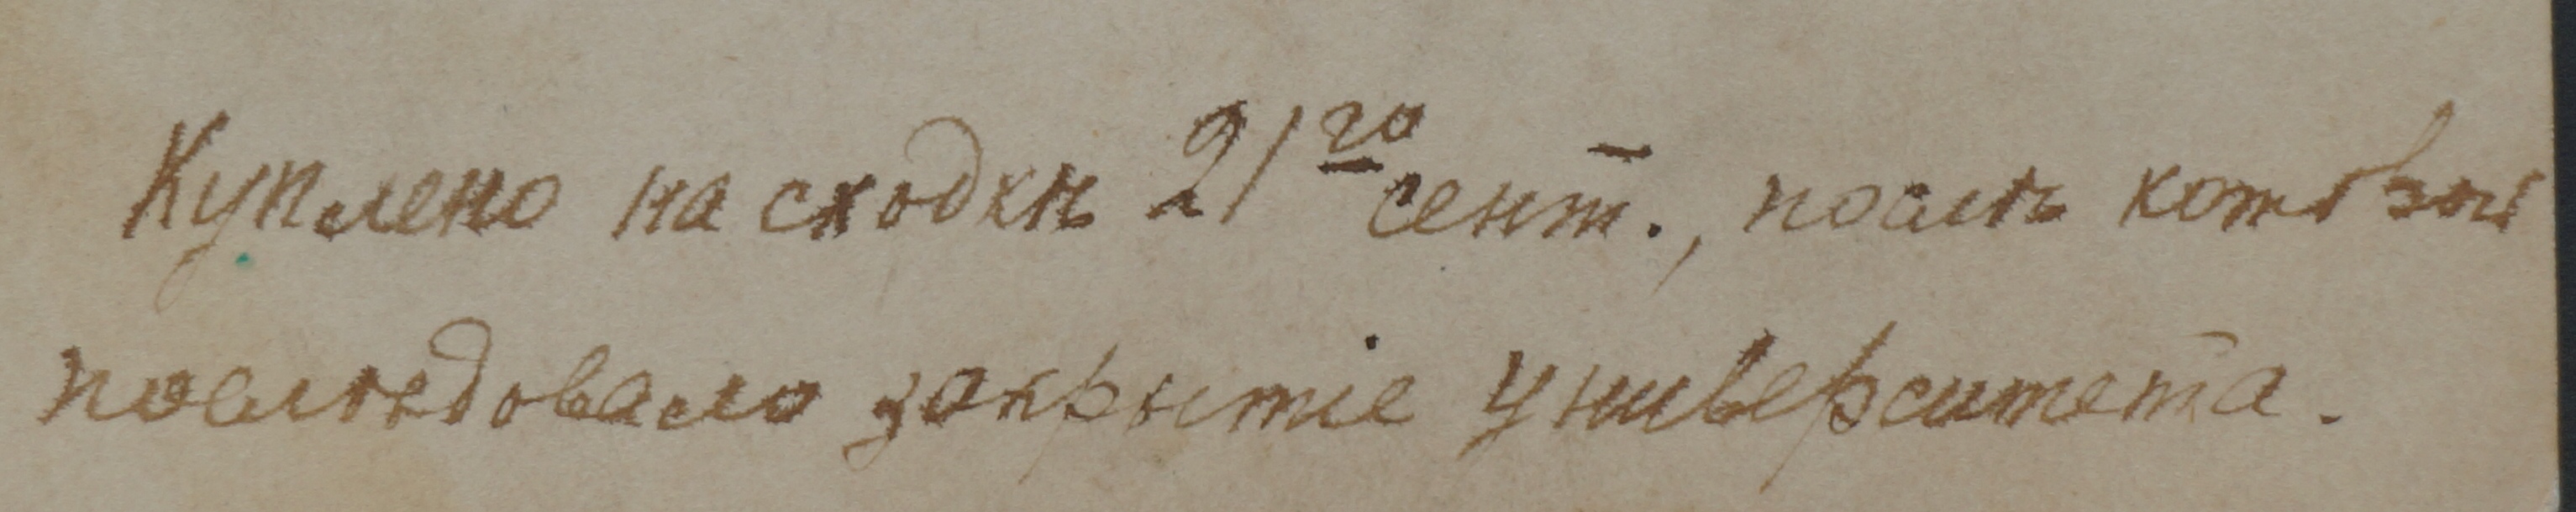 Куплено на сходкѣ 21го сент., послѣ которой
послѣдовало закрытіе Университета.